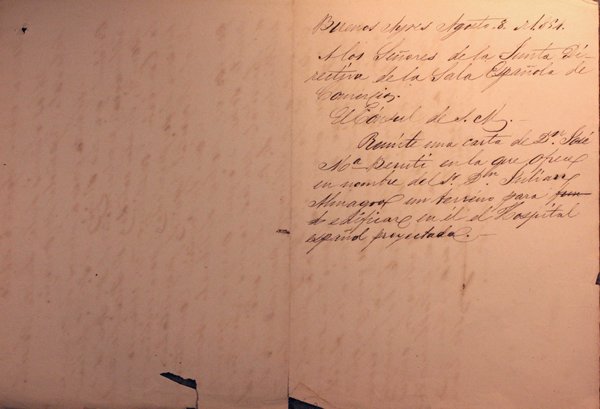 Buenos Ayres Agosto 3 de 1854.
A los Señores de la Junta Di-
rectiva de la Sala Española de
Comercio.
El Cónsul de S. M.
Remite una carta de Dn. José
Ma. en la que ofrece
en nombre del Sr. Dn. Julian
Almagro un terreno para
edificar en él el Hospital
español proyectado.